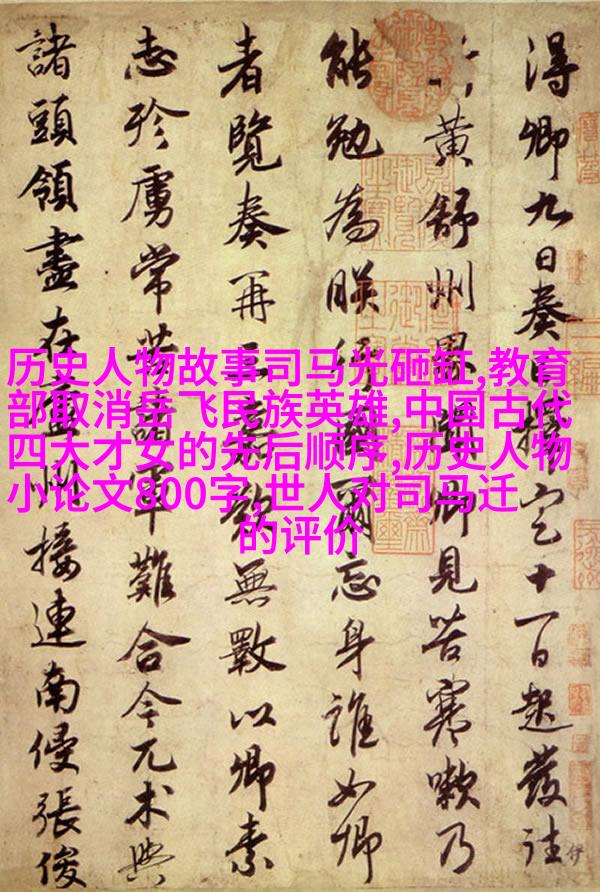 得卿九日奏已擇定十一日起發往
黃舒州界聞卿見苦寒嗽乃
能勉為朕行國爾忘身誰如卿
者覽奏再三嘉歎無斁以卿素
志殄虜常苦諸軍難合今兀术與
諸頭領盡在廬州接連南侵張俊
历史人物故事司马光砸缸,教育
部取消岳飞民族英雄,中国古代
四大才女的先后顺序,历史人物
小论文800字,世人对司马迁
的评价